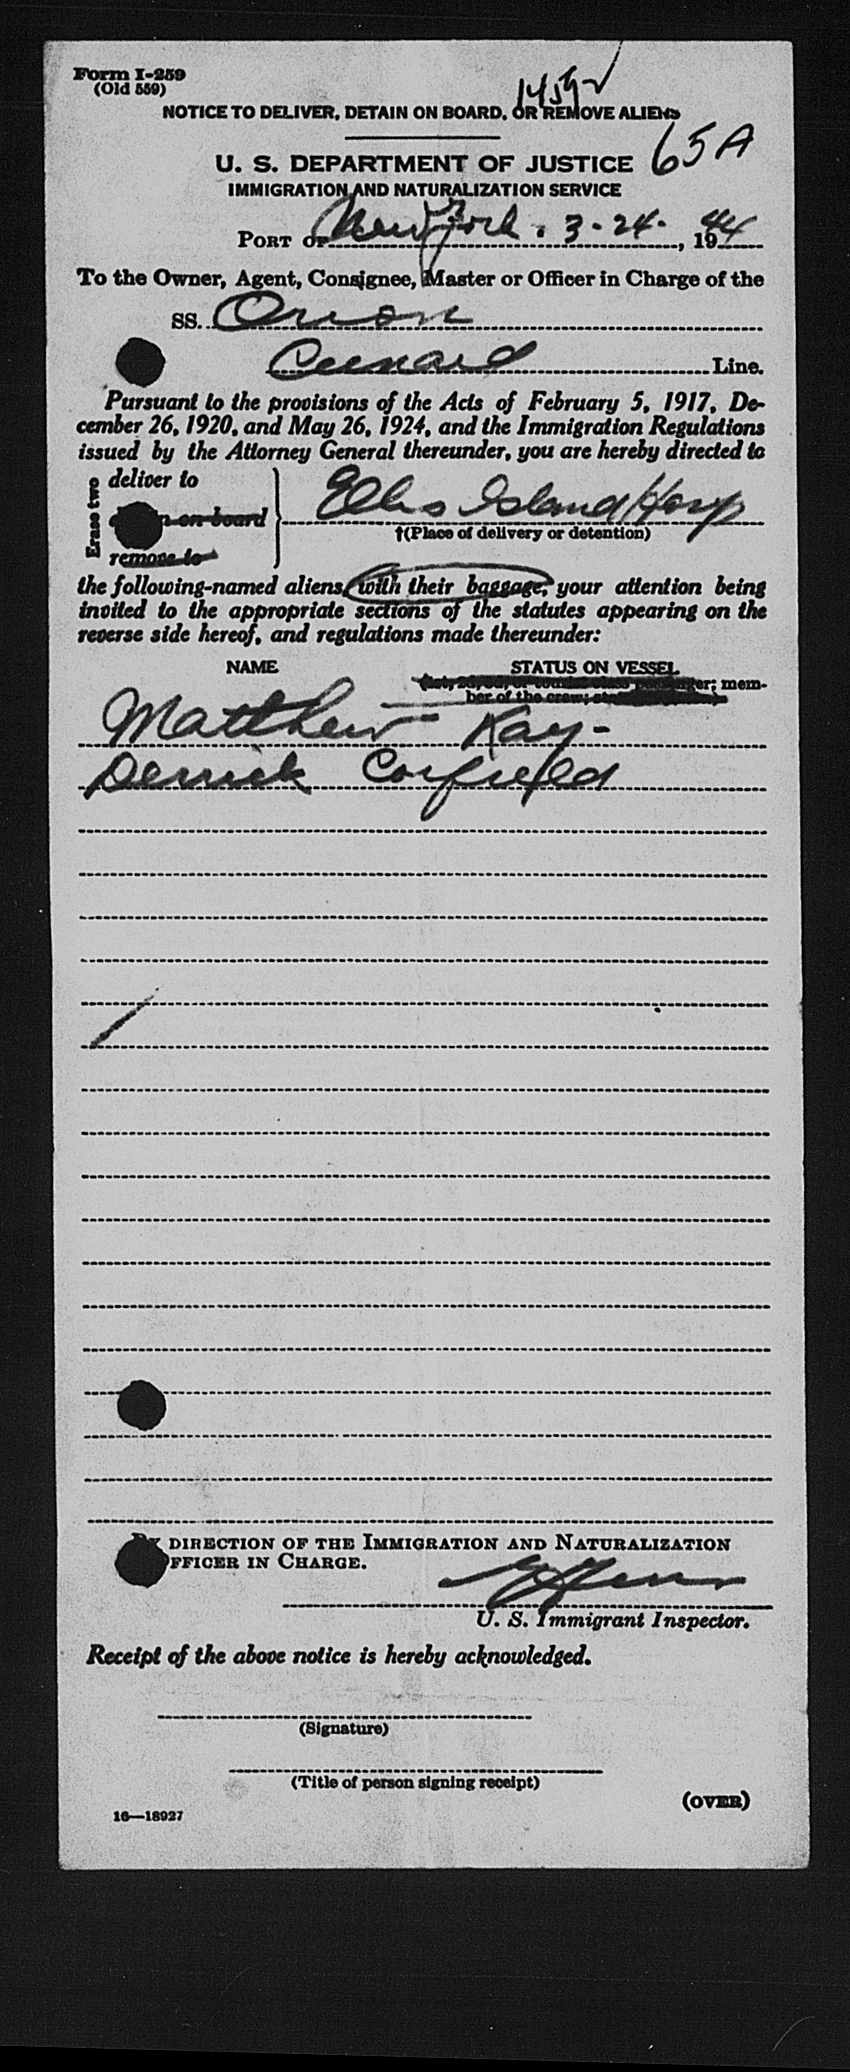 Form I-259
(Old 559)
NOTICE TO DELIVER, DETAIN ON BOARD, OR REMOVE ALIENS
65A
U. S. DEPARTMENT OF JUSTICE
IMMIGRATION AND NATURALIZATION SERVICE
PORT OF New York. 3-24-, 1944
To the Owner, Agent, Consignee, Master or Officer in Charge of the
SS. Orion
Cunard Line.
Pursuant to the provisions of the Acts of February 5, 1917, De-
cember 26, 1920, and May 26, 1924, and the Immigration Regulations
issued by the Attorney General thereunder, you are hereby directed to
Erase two
deliver to
on board
remove to
Ellis Island Hosp
†(Place of delivery or detention)
the following-named aliens, with their baggage, your attention being
invited to the appropriate sections of the statutes appearing on the
reverse side hereof, and regulations made thereunder:
NAME STATUS ON VESSEL
mem-
ber of the crew;
Matthew Kay-
Derrick Corfield
BY DIRECTION OF THE IMMIGRATION AND NATURALIZATION
OFFICER IN CHARGE.
U. S. Immigrant Inspector.
Receipt of the above notice is hereby acknowledged.
(Signature)
(Title of person signing receipt)
(OVER)
16—18927